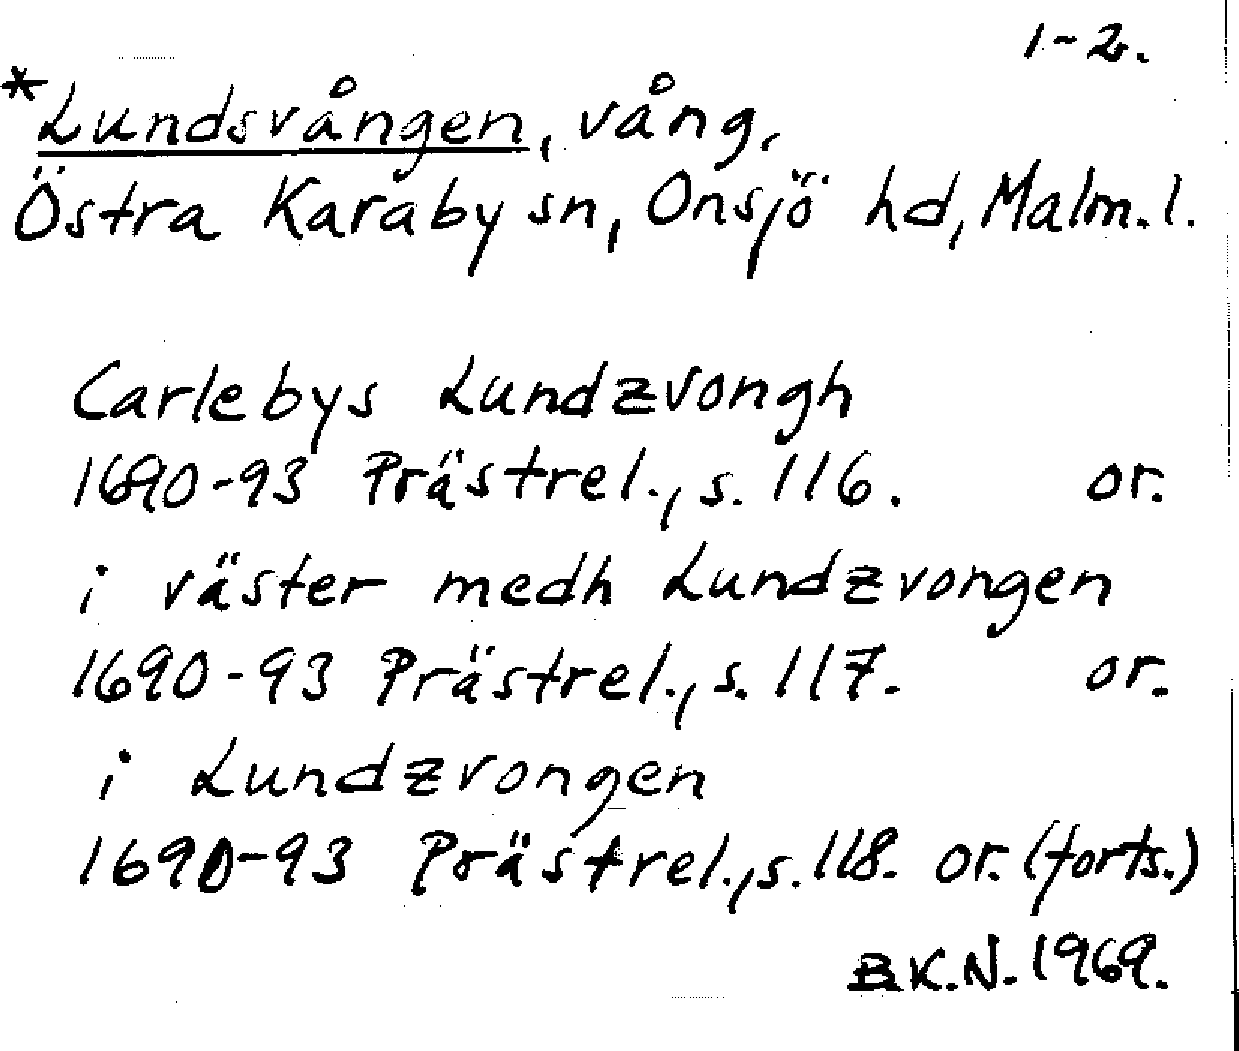 1-2.
*Lundsvången, vång,
Östra Karaby sn, Onsjö hd, Malm. l.
Carlebys Lundzvongh
1690-93 Prästrel., s. 116. or.
i väster medh Lundzvongen
1690-93 Prästrel., s. 117. or.
i Lundzvongen
1690-93 Prästrel., s. 118. or. (forts.)
B.K.N. 1969.